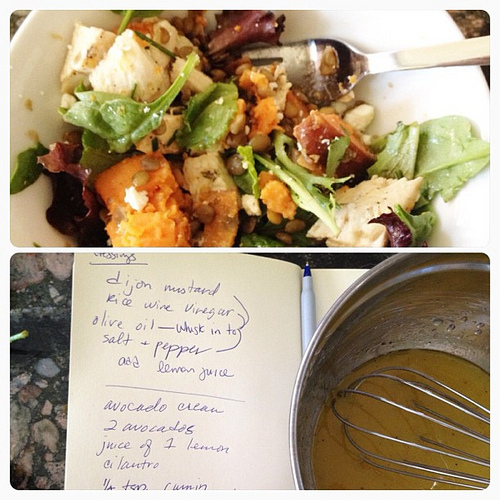 dressings
dijon mustard
rice wine vinegar
olive oil — whisk in to
salt + pepper
add lemon juice
avocado cream
2 avocados
juice of 1 lemon
cilantro
1/4 tsp cumin